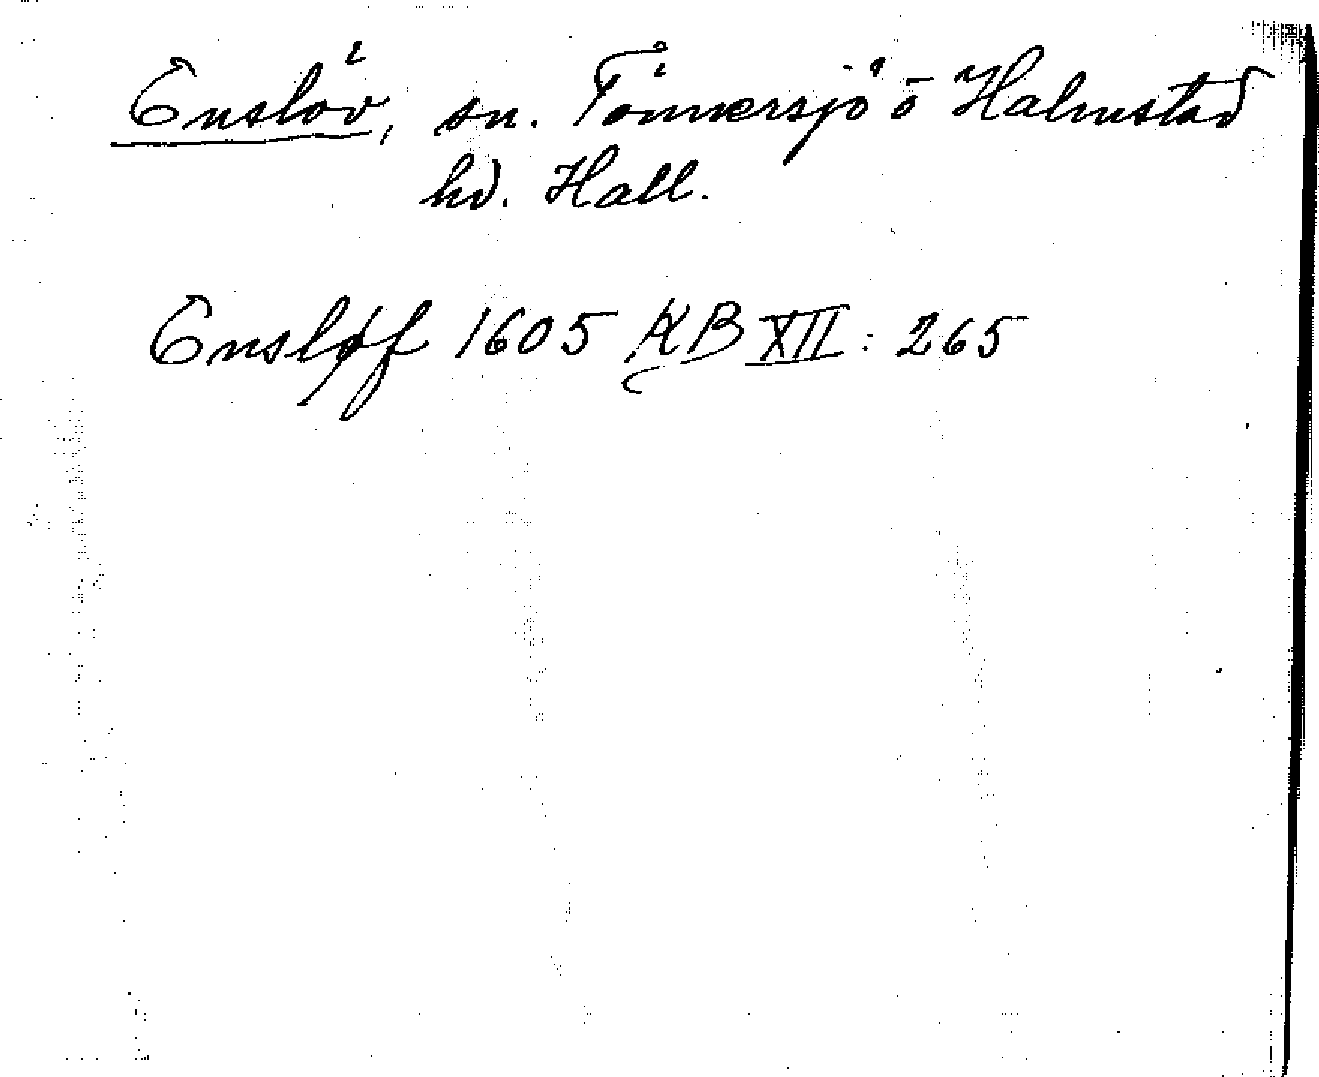 Enslöv, sn. Tönnersjö o Halmstad
hd. Hall.
Ensløf 1605 KB XII: 265